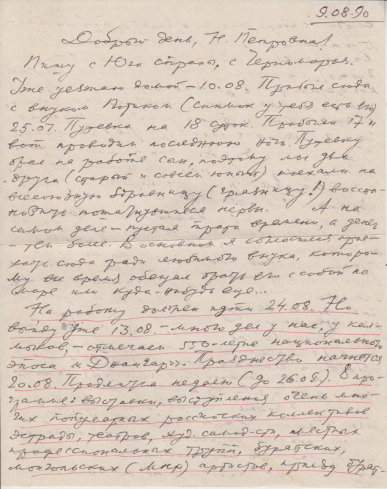 9.08.90
Добрый день, Н. Петровна!
Пишу с Юга страны, с Черноморья.
Уже уезжаю домой – 10.08. Прибыл сюда
с внуком (снимок у тебя есть его)
25.07. Путевка на 18 суток. Пробыли 17 и
вот проводим последнюю ночь. Путевку
брал на работе сын, поэтому мы два
друга (старый и совсем юный) поехали на
всесоюзную здравницу (грязницу!) восста-
новить потрепавшиеся нервы. А на
самом деле – пустая трата времени, а денег
– тем более. В основном я согласился прие-
хать сюда ради любимого внука, которо-
му все время обещал брать его с собой на
море или куда-нибудь еще...
На работу должен идти 24.08. Но
выйду уже 13.08 – много дел у нас, у кал-
мыков, – отмечаем 550-летие национального
эпоса «Джангар». Празднество начнется
20.08. Продлится неделю (до 26.08). В про-
грамме: выставки, выступления очень мно-
гих популярных российских коллективов
эстрады, театров, худ. самод-сти, местных
профессиональных групп, бурятских,
монгольских (МНР) артистов, приезд